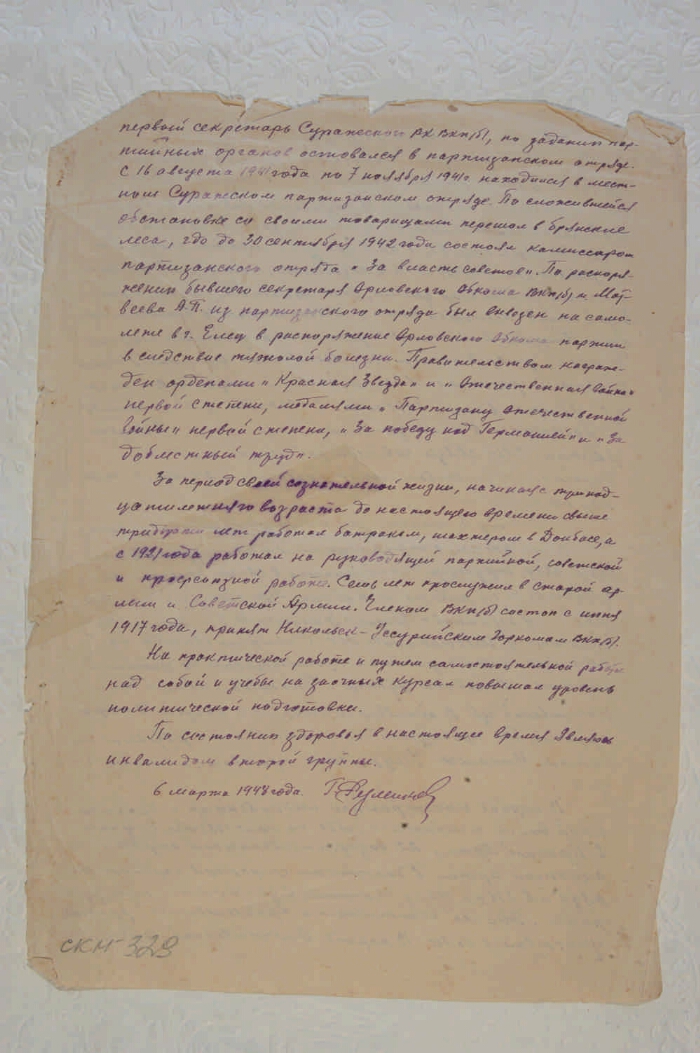 первый секретарь Суражского РК ВКП(б), по заданию пар-
тийных органов оставался в партизанском отряде.
С 16 августа 1941 года по 7 ноября 1941 г. находился в мест-
ном Суражском партизанском отряде. По сложившейся
обстановке со своими товарищами перешол в брянские
леса, где до 30 сентября 1942 года состоял комиссаром
партизанского отряда "За власть советов". По распоря-
жению бывшего секретаря Орловского Обкома ВКП(б) и Мат-
веева А.П. из партизанского отряда был вывезен на само-
лете в г. Елец в распоряжение Орловского Обкома партии
в следствие тяжолой болезни. Правительством награж-
ден орденами "Красная Звезда" и "Отечественная война"
первой степени, медалями "Партизану Отечественной
войны" первой степени, "За победу над Германией" и "За
доблестный труд".
За период своей сознательной жизни, начиная с тринад-
цатилетняго возраста до настоящего времени свыше
тридцати лет работал батраком, шахтером в Донбасе, а
с 1921 года работал на руководящей партийной, советской
и професиональной работе. Семь лет прослужил в старой ар-
мии и Советской Армии. Членом ВКП(б) состою с июня
1917 года, принят Никольск-Уссурийским Горкомам ВКП(б).
На практической работе и путем самостоятельной работы
над собой и учебы на заочных курсах повышал уровень
политической подготовки.
По состоянию здоровья в настоящее время являюсь
инвалидом второй группы.
6 марта 1948 года.
СКМ-329